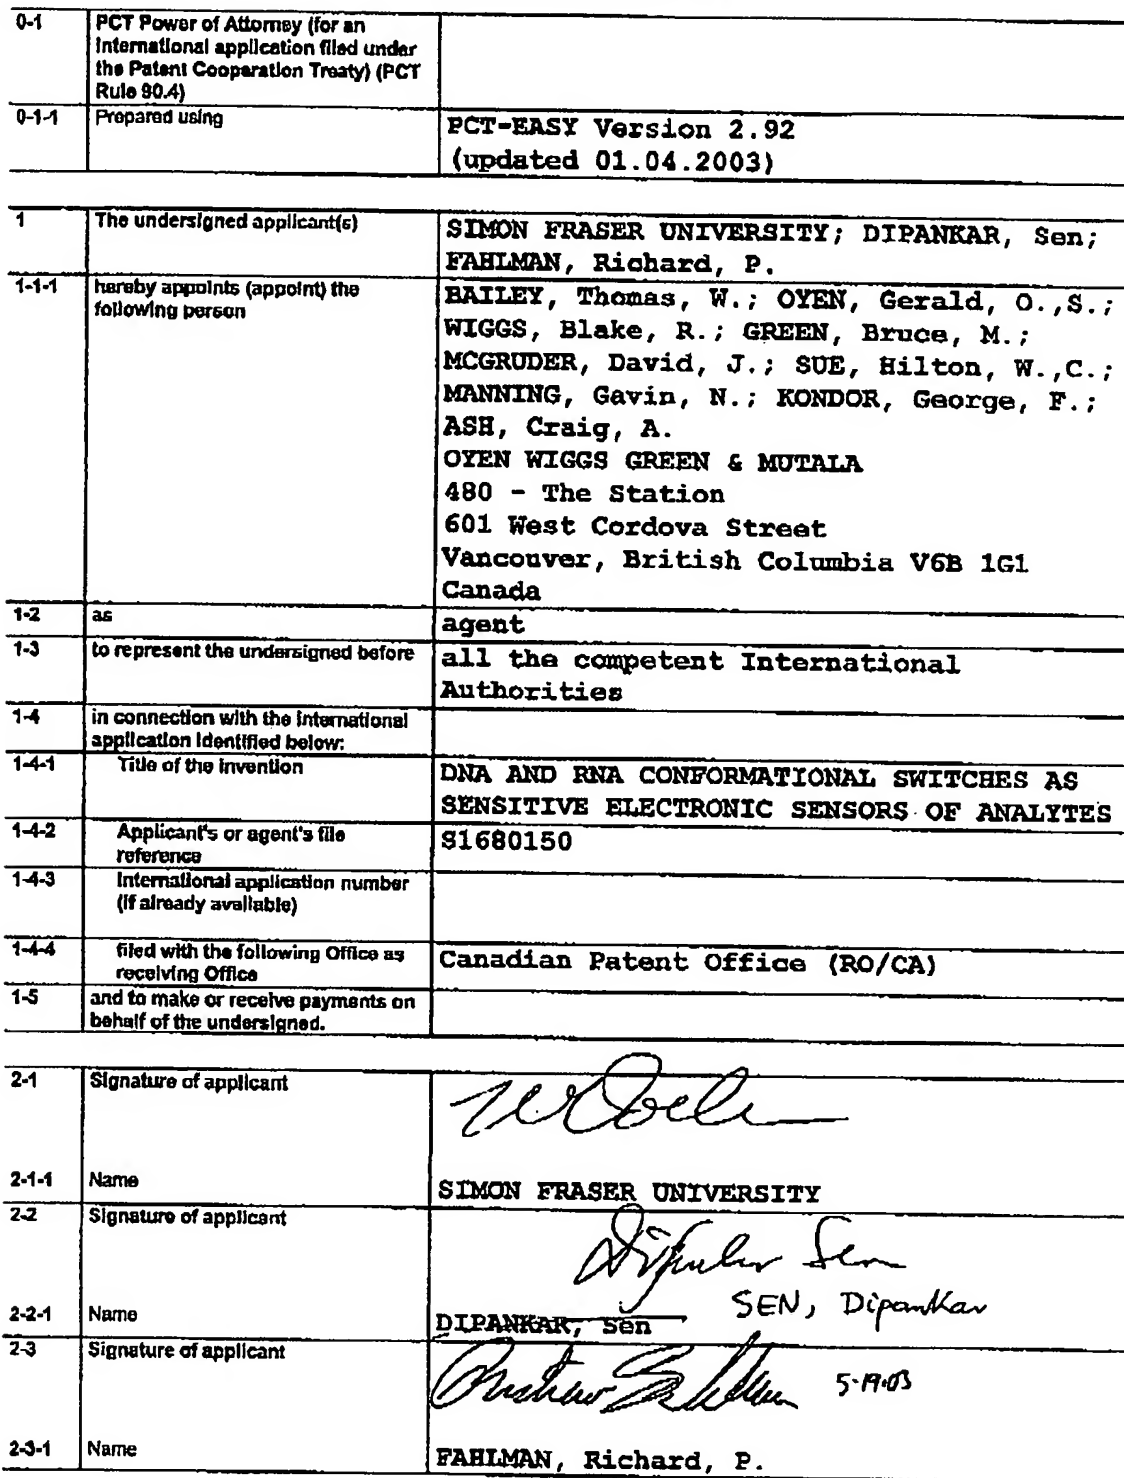 0-1 PCT Power of Attorney (for an
International application filed under
the Patent Cooperation Treaty) (PCT
Rule 90.4)
0-1-1 Prepared using PCT-EASY Version 2.92
(updated 01.04.2003)
1 The undersigned applicant(s) SIMON FRASER UNIVERSITY; DIPANKAR, Sen;
FAHLMAN, Richard, P.
1-1-1 hereby appoints (appoint) the
following person
BAILEY, Thomas, W.; OYEN, Gerald, O.,S.;
WIGGS, Blake, R.; GREEN, Bruce, M.;
MCGRUDER, David, J.; SUE, Hilton, W.,C.;
MANNING, Gavin, N.; KONDOR, George, F.;
ASH, Craig, A.
OYEN WIGGS GREEN & MUTALA
480 - The Station
601 West Cordova Street
Vancouver, British Columbia V6B 1G1
Canada
1-2 as agent
1-3 to represent the undersigned before all the competent International
Authorities
1-4 in connection with the international
application identified below:
1-4-1 Title of the invention DNA AND RNA CONFORMATIONAL SWITCHES AS
SENSITIVE ELECTRONIC SENSORS OF ANALYTES
1-4-2 Applicant's or agent's file
reference
S1680150
1-4-3 International application number
(if already available)
1-4-4 filed with the following Office as
receiving Office
Canadian Patent Office (RO/CA)
1-5 and to make or receive payments on
behalf of the undersigned.
2-1 Signature of applicant
2-1-1 Name SIMON FRASER UNIVERSITY
2-2 Signature of applicant Dipankar Sen
2-2-1 Name DIPANKAR, Sen SEN, Dipankar
2-3 Signature of applicant 5-19-03
2-3-1 Name FAHLMAN, Richard, P.